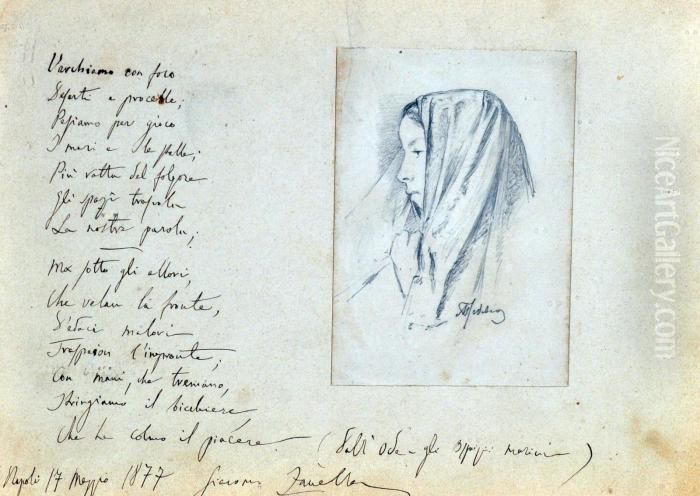 Varchiamo con foco
Deserti e procelle;
Pesiamo per gioco
I mari e le stelle;
Più ratta del folgore
Gli spazi trasvola
La nostra parola;
Ma sotto gli allori,
Che velan la fronte,
D'edaci malori
Trasparon l'impronte;
Con mani, che tremano,
Stringiamo il bicchiere
Che ha colmo il piacere
(Dall' Ode - gli Ospizi marini)
Napoli 17 Maggio 1877 Giacomo Zanella
NiceArtGallery.com